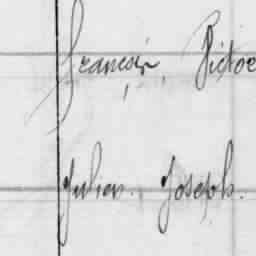 Francois, Victor
Julien, Joseph.